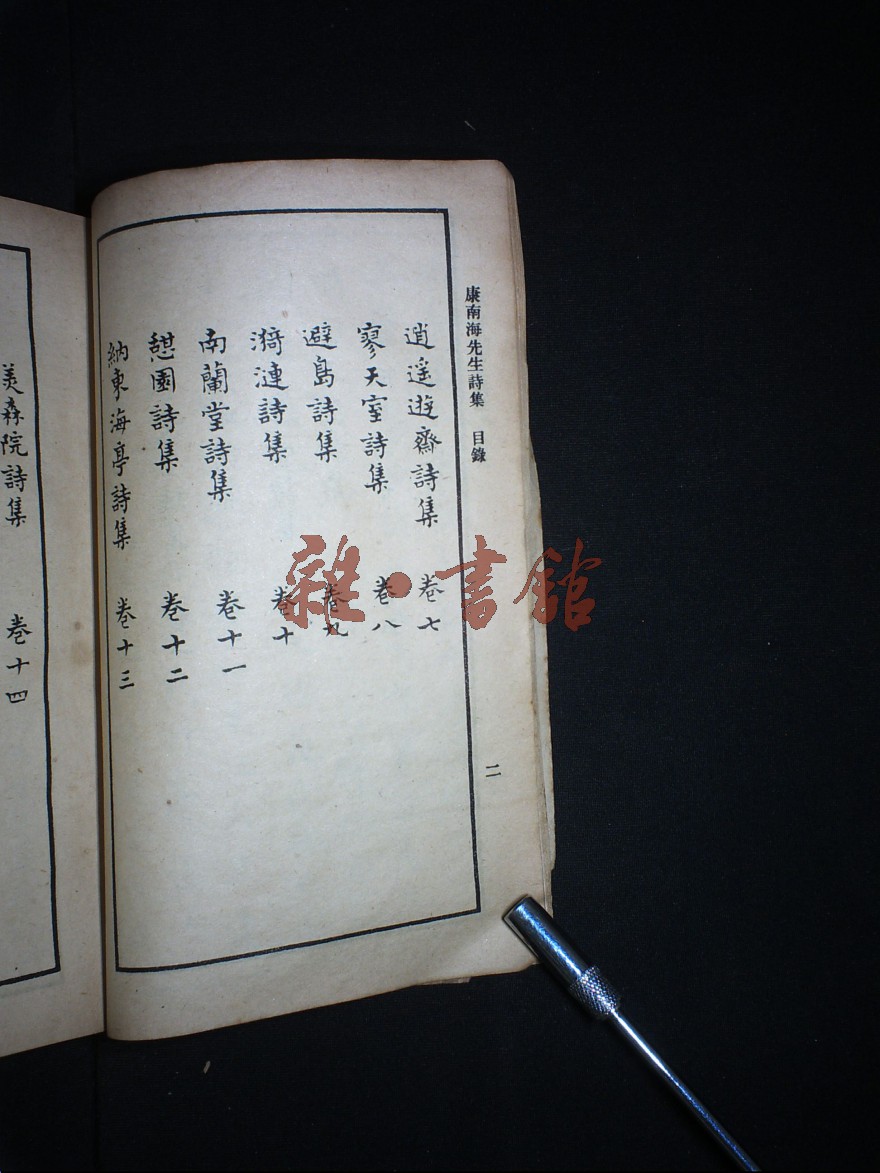 康南海先生詩集 目錄
二
逍遥遊齋詩集 卷七
寥天室詩集 卷八
避島詩集 卷九
漪漣詩集 卷十
南蘭堂詩集 卷十一
憇園詩集 卷十二
納東海亭詩集 卷十三
美森院詩集 卷十四
雜·書館